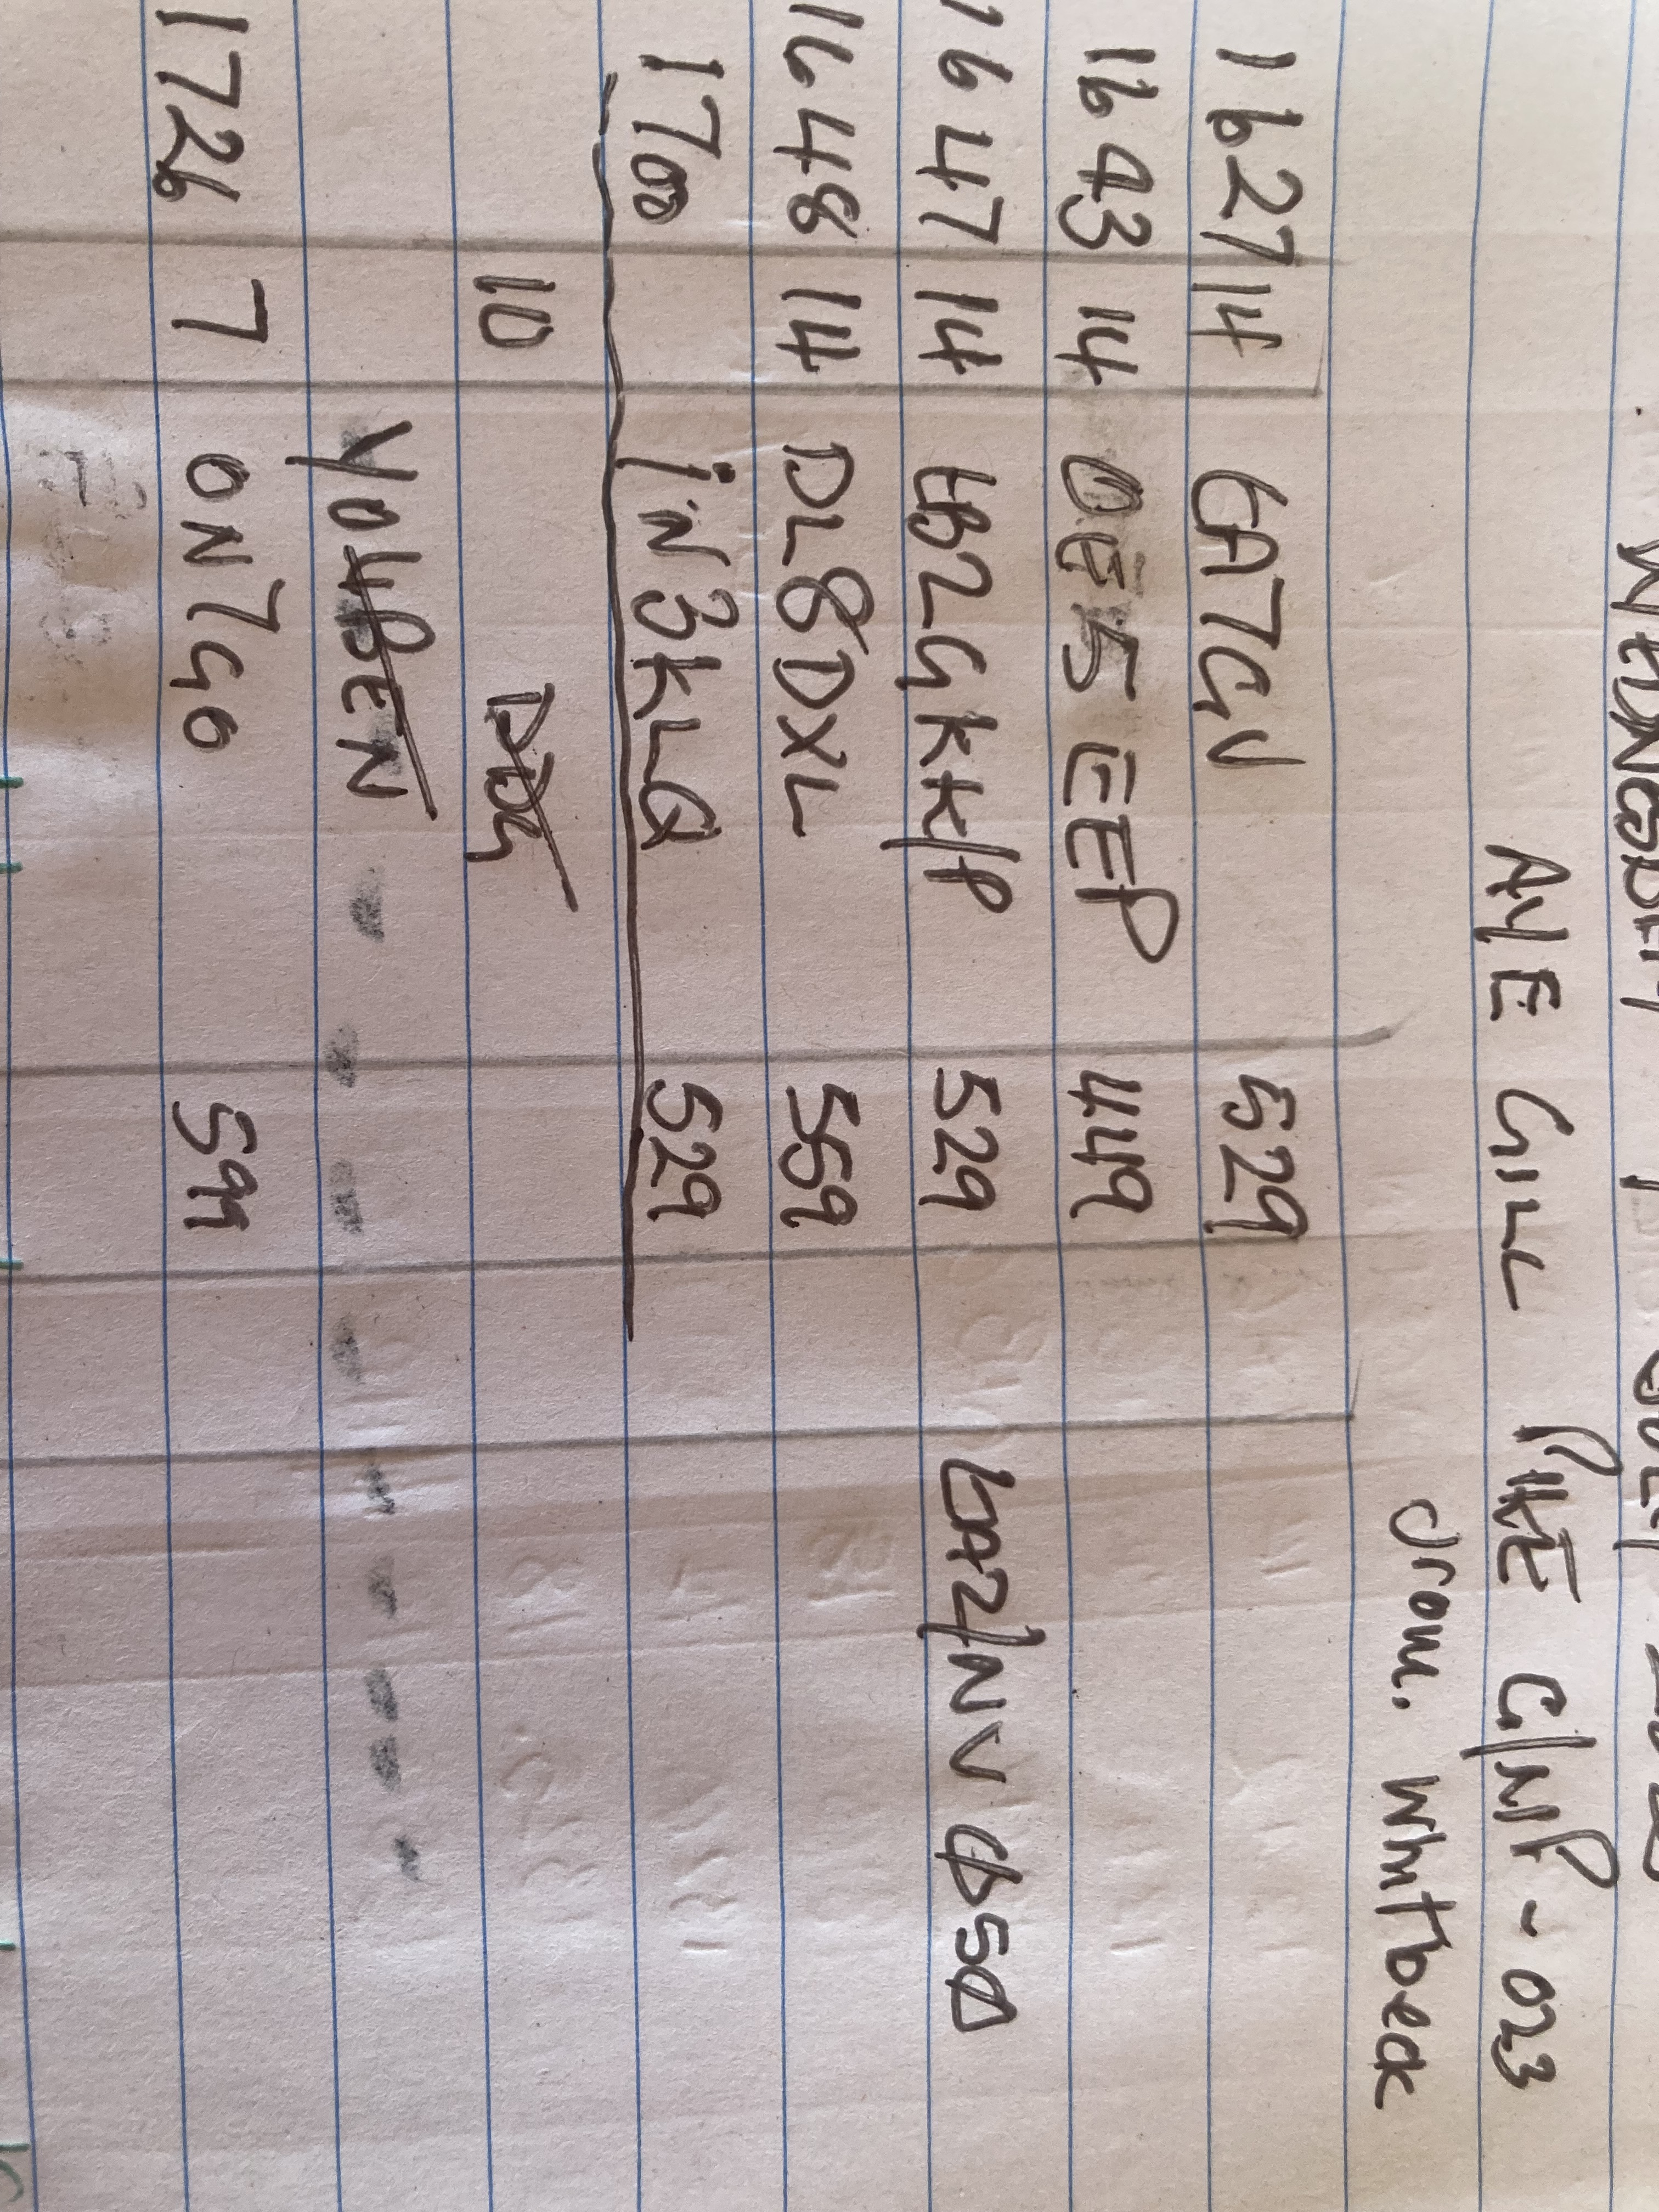 AYE GILL PIKE G/NP-023
from. Whitbeck
1627 14 EA7GV 529
1643 14 OE5EEP 449
1647 14 LB2GKK/P 529 LA2/NV
1648 14 DL8DXL 559
1700 iN3KLQ 529
10
1726 7 ON7GO 599